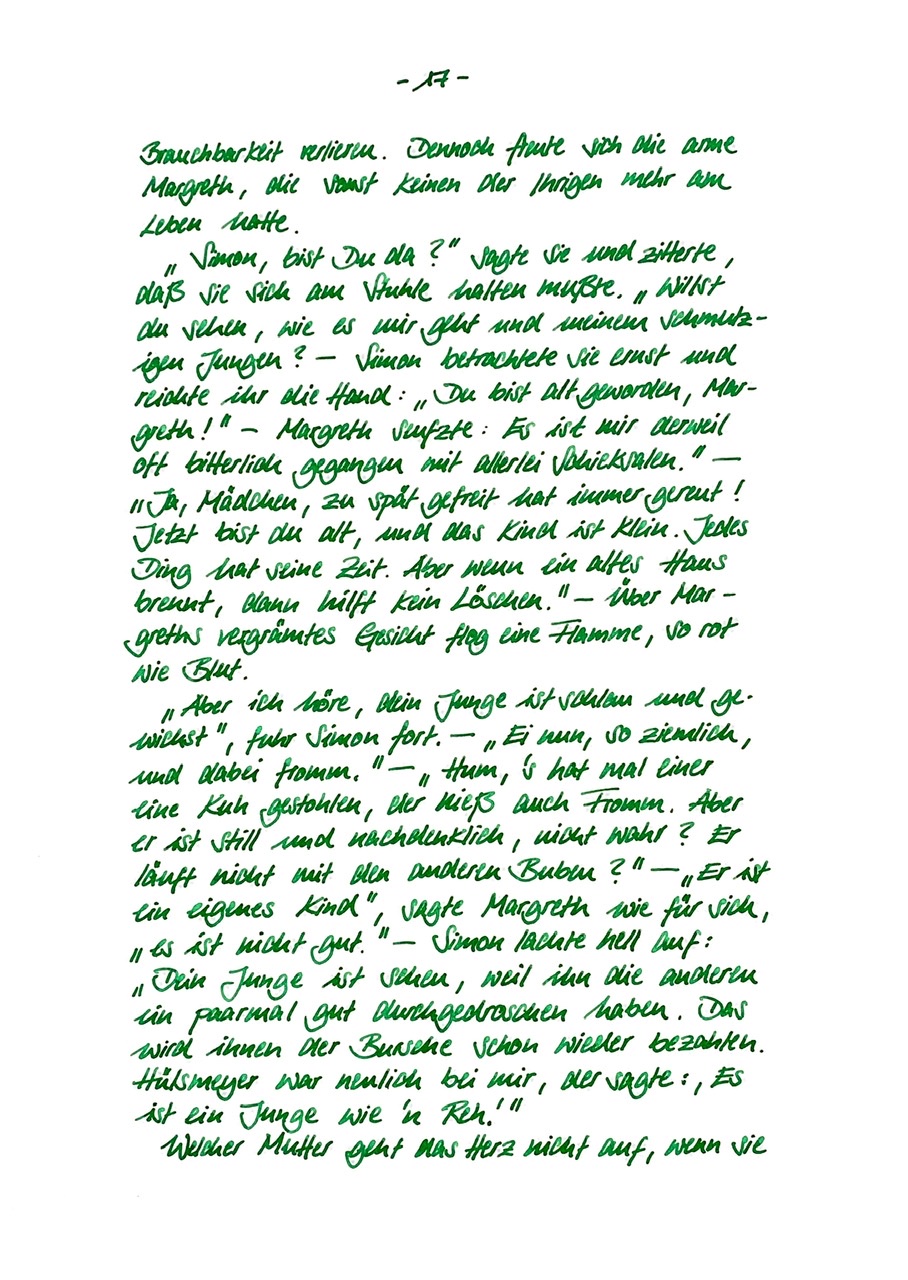 - 17 -
Brauchbarkeit verlieren. Dennoch freute sich die arme
Margreth, die sonst keinen der Ihrigen mehr am
Leben hatte.
„Simon, bist Du da?" sagte sie und zitterte,
daß sie sich am Stuhle halten mußte. „Willst
du sehen, wie es mir geht und meinem schmutz-
igen Jungen? — Simon betrachtete sie ernst und
reichte ihr die Hand: „Du bist alt geworden, Mar-
greth!" — Margreth seufzte: Es ist mir derweil
oft bitterlich gegangen mit allerlei Schicksalen." —
„Ja, Mädchen, zu spät gefreit hat immer gereut!
Jetzt bist du alt, und das Kind ist klein. Jedes
Ding hat seine Zeit. Aber wenn ein altes Haus
brennt, dann hilft kein Löschen." — Über Mar-
greths vergrämtes Gesicht flog eine Flamme, so rot
wie Blut.
„Aber ich höre, dein Junge ist schlau und ge-
wichst", fuhr Simon fort. — „Ei nun, so ziemlich,
und dabei fromm." — „Hum, 's hat mal einer
eine Kuh gestohlen, der hieß auch Fromm. Aber
er ist still und nachdenklich, nicht wahr? Er
läuft nicht mit den anderen Buben?" — „Er ist
ein eigenes Kind", sagte Margreth wie für sich,
„es ist nicht gut." — Simon lachte hell auf:
„Dein Junge ist scheu, weil ihn die anderen
ein paarmal gut durchgedroschen haben. Das
wird ihnen der Bursche schon wieder bezahlen.
Hülsmeyer war neulich bei mir, der sagte: ‚Es
ist ein Junge wie 'n Reh.'"
Welcher Mutter geht das Herz nicht auf, wenn sie